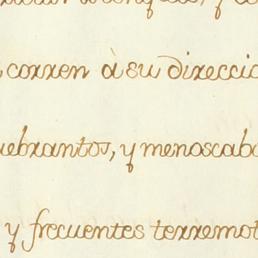 corren à su direcci
uebrantos, y menoscab
y frecuentes terremot